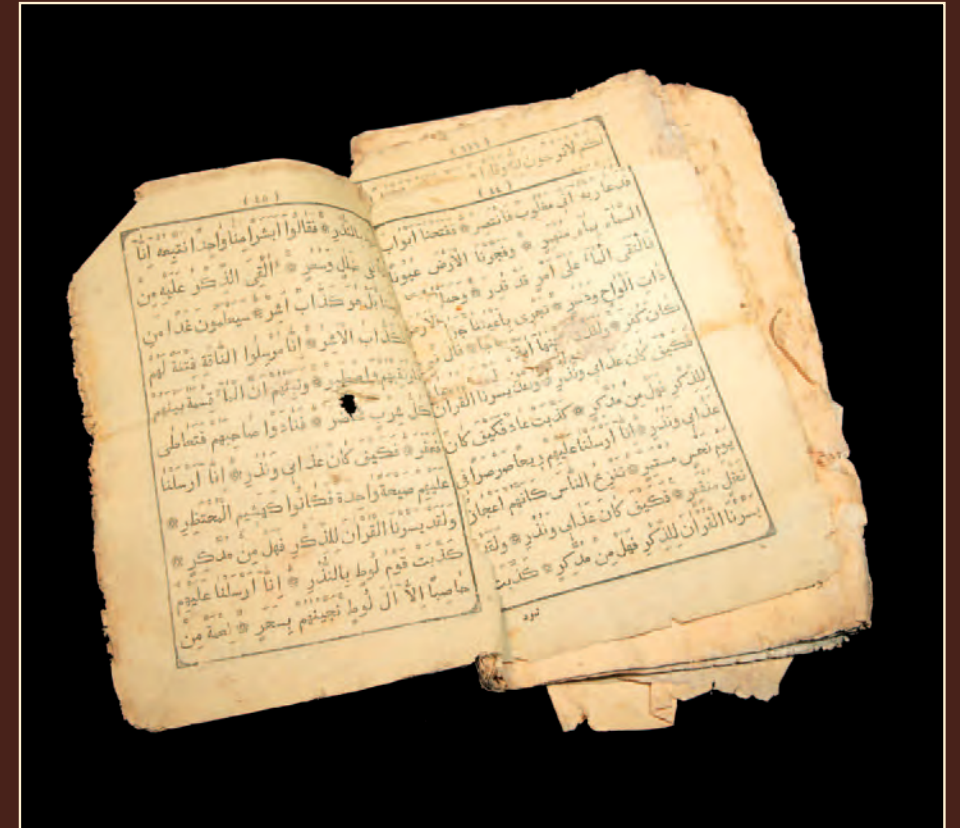 لكم لا ترجون لله
( ٤٤ )
فَدَعَا رَبَّهُ أَنِّي مَغْلُوبٌ فَانْتَصِرْ * فَفَتَحْنَا أَبْوَابَ
السَّمَاءِ بِمَاءٍ مُنْهَمِرٍ * وَفَجَّرْنَا الْأَرْضَ عُيُونًا
فَالْتَقَى الْمَاءُ عَلَى أَمْرٍ قَدْ قُدِرَ *
ذَاتِ أَلْوَاحٍ وَدُسُرٍ * تَجْرِي بِأَعْيُنِنَا جَزَاءً
كَانَ كُفِرَ * وَلَقَدْ آيَةً
فَكَيْفَ كَانَ عَذَابِي وَنُذُرِ * وَلَقَدْ يَسَّرْنَا الْقُرْآنَ
لِلذِّكْرِ فَهَلْ مِنْ مُدَّكِرٍ * كَذَّبَتْ عَادٌ فَكَيْفَ كَانَ
عَذَابِي وَنُذُرِ * إِنَّا أَرْسَلْنَا عَلَيْهِمْ رِيحًا صَرْصَرًا فِي
يَوْمِ نَحْسٍ مُسْتَمِرٍّ * تَنْزِعُ النَّاسَ كَأَنَّهُمْ أَعْجَازُ
نَخْلٍ مُنْقَعِرٍ * فَكَيْفَ كَانَ عَذَابِي وَنُذُرِ * وَلَقَدْ
يَسَّرْنَا الْقُرْآنَ لِلذِّكْرِ فَهَلْ مِنْ مُدَّكِرٍ * كَذَّبَتْ
ثمود
( ٤٥ )
بِالنُّذُرِ * فَقَالُوا أَبَشَرًا مِنَّا وَاحِدًا نَتَّبِعُهُ إِنَّا
لَفِي ضَلَالٍ وَسُعُرٍ * أَأُلْقِيَ الذِّكْرُ عَلَيْهِ مِنْ
بَلْ هُوَ كَذَّابٌ أَشِرٌ * سَيَعْلَمُونَ غَدًا مَنِ
الْكَذَّابُ الْأَشِرُ * إِنَّا مُرْسِلُوا النَّاقَةِ فِتْنَةً لَهُمْ
وَاصْطَبِرْ * وَنَبِّئْهُمْ أَنَّ الْمَاءَ قِسْمَةٌ بَيْنَهُمْ
كُلُّ شِرْبٍ مُحْتَضَرٌ * فَنَادَوْا صَاحِبَهُمْ فَتَعَاطَى
فَعَقَرَ * فَكَيْفَ كَانَ عَذَابِي وَنُذُرِ * إِنَّا أَرْسَلْنَا
عَلَيْهِمْ صَيْحَةً وَاحِدَةً فَكَانُوا كَهَشِيمِ الْمُحْتَظِرِ *
وَلَقَدْ يَسَّرْنَا الْقُرْآنَ لِلذِّكْرِ فَهَلْ مِنْ مُدَّكِرٍ *
كَذَّبَتْ قَوْمُ لُوطٍ بِالنُّذُرِ * إِنَّا أَرْسَلْنَا عَلَيْهِمْ
حَاصِبًا إِلَّا آلَ لُوطٍ نَجَّيْنَهُمْ بِسَحَرٍ * نِعْمَةً مِنْ